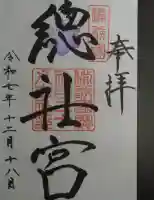 奉拝
總社宮
令和七年十二月十八日